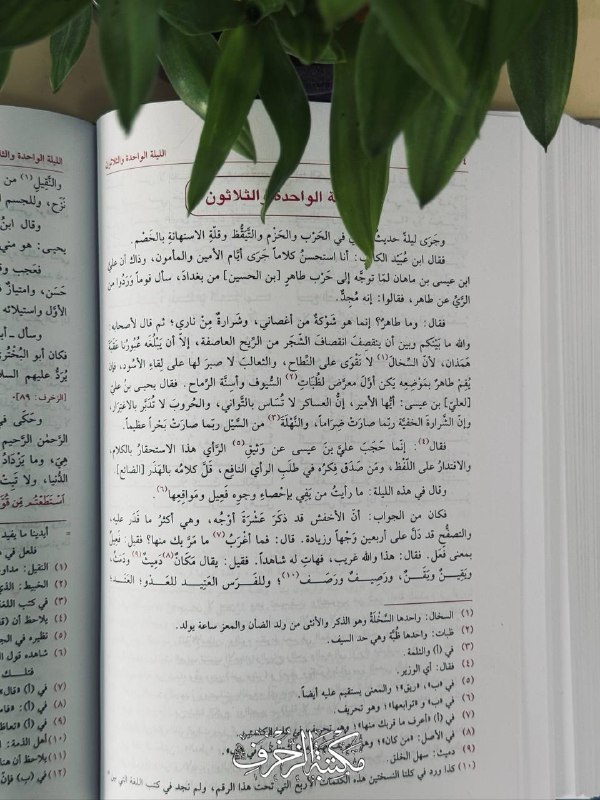 الليلة الواحدة والثلاثون
الواحدة والثلاثون
وجَرَى ليلةً حديثُ في الحَرْب والحَزْم والتَّيَقُّظ وقلّةِ الاستهانةِ بالخَصْم.
فقال ابن عُبَيد الكاتب: أنا أستحسنُ كلاماً جَرَى أيّامَ الأمين والمأمون، وذاك أن علي
ابن عيسى بن ماهان لمّا توجّه إلى حَرْب طاهر [بن الحسين] من بغداد، سأل قوماً وَرَدُوا من
الرّيّ عن طاهر، فقالوا: إنه مُجِدٌّ.
فقال: وما طاهر؟! إنما هو شَوْكَة من أغصاني، وشَرارة مِنْ ناري؛ ثم قال لأصحابه:
والله ما بَيْنَكم وبين أن ينقصِفَ انقصافَ الشّجَر من الرّيح العاصفة، إلاّ أن يَبْلُغَه عُبورُنا عقَبَة
هَمَذان، لأنّ السِّخالَ(١) لا تَقْوَى على النِّطاح، والثعالبَ لا صبرَ لها على لِقاءِ الأسْود، فإن
يُقِمْ طاهرٌ بمَوْضِعِه يكن أوّلَ معرَّضٍ لظُبَاتِ(٢) السُّيوف وأسنَّة الرّماح. فقال يحيى بن عليّ
[لعليّ] بن عيسى: أيّها الأمير، إنَّ العساكر لا تُساس بالتَّواني، والحُروبَ لا تُدَبَّر بالاغترار،
وإنّ الشّرارةَ الخفيَّة ربّما صارت ضِراماً، والنَّهْلَةَ(٣) من السَّيْل ربّما صارت بَحْراً عظيماً.
فقال(٤): إنّما حَجَبَ عليَّ بنَ عيسى عن وَثِيقِ(٥) الرَّأي هذا الاستحقارُ بالكلام،
والاقتدارُ على اللّفظ، ومَن صَدَق فِكرُه في طلَبِ الرأي النافع، قَلَّ كلامُه بالهَذَر [الضائع].
وقال في هذه الليلة: ما رأيتُ من يَفِي بإحْصاءِ وجوهِ فَعِيل ومَواقعِها(٦).
فكان من الجواب: أنّ الأخفش قد ذكَرَ عَشْرَةَ أوْجُه، وهي أكثرُ ما قَدَر عليه،
والتصفُّحُ قد دَلَّ على أربعين وَجْهاً وزيادة. قال: فما أغْرَبُ(٧) ما مَرَّ بك منها؟ فقيل: فَعِيلٌ
بمعنى فَعَل. فقال: هذا والله غريب، فهاتِ له شاهداً. فقيل: يقال مَكَانٌ(٨) دَمِيثٌ(٩) ودَمَثٌ،
ويَقِينٌ ويَقَنٌ، ورَصِيفٌ ورَصَف(١٠)؛ وللفَرَس العَتِيدِ للعَدْو؛ العَتَد؛
(١) السخال: واحدها السَّخْلَةُ وهو الذكر والأنثى من ولد الضأن والمعز ساعة يولد.
(٢) ظبات: واحدها ظُبَة وهي حد السيف.
(٣) في (أ) والثلمة.
(٤) فقال: أي الوزير.
(٥) في «ب»، «ريق»؛ والمعنى يستقيم عليه أيضاً.
(٦) في «ب» و «توابعها» وهو تحريف.
(٧) في (أ) «أعرف ما قربك منها»؛ وهو
(٨) في الأصل: «من كان»؛ وهو
(٩) دميث: سهل الخلق.
(١٠) كذا ورد في كلتا النسختين هذه الكلمات الأربع التي تحت هذا الرقم، ولم نجد في كتب اللغة
الليلة الواحدة والثلا
والثَّقيلِ(١) من
نَزَح، وللجسيم
وقال ابنُ
يحيى: هو مني
فعجب و
حَسَن، وامتيازٌ
الأوّل واستيلائه
وسأل
فكان أبو البُخْتُرِيّ
يُرَدُّ عليهم السلا
[الزخرف: ٨٩].
وحَكَى في
الرّحمٰن الرَّحيم
هِيَ، وما يَزْدَادُ
الدُّنيا، ولا
= أيدينا ما يفيد
فلعل في
(١) الثقيل:
(٢) الخبيط: الذي
(٣) في كتب اللغة
(٤) يلاحظ أن
(٥) نظيره في
(٦) شاهده قول
(٧) في (أ) «قال»
(٨) في (أ): «قا
(٩) في (أ) «تعاظ
(١٠) أهل الذمة:
(١١) يلاحظ
(١٢) في (ب)
مكتبة الزخرف